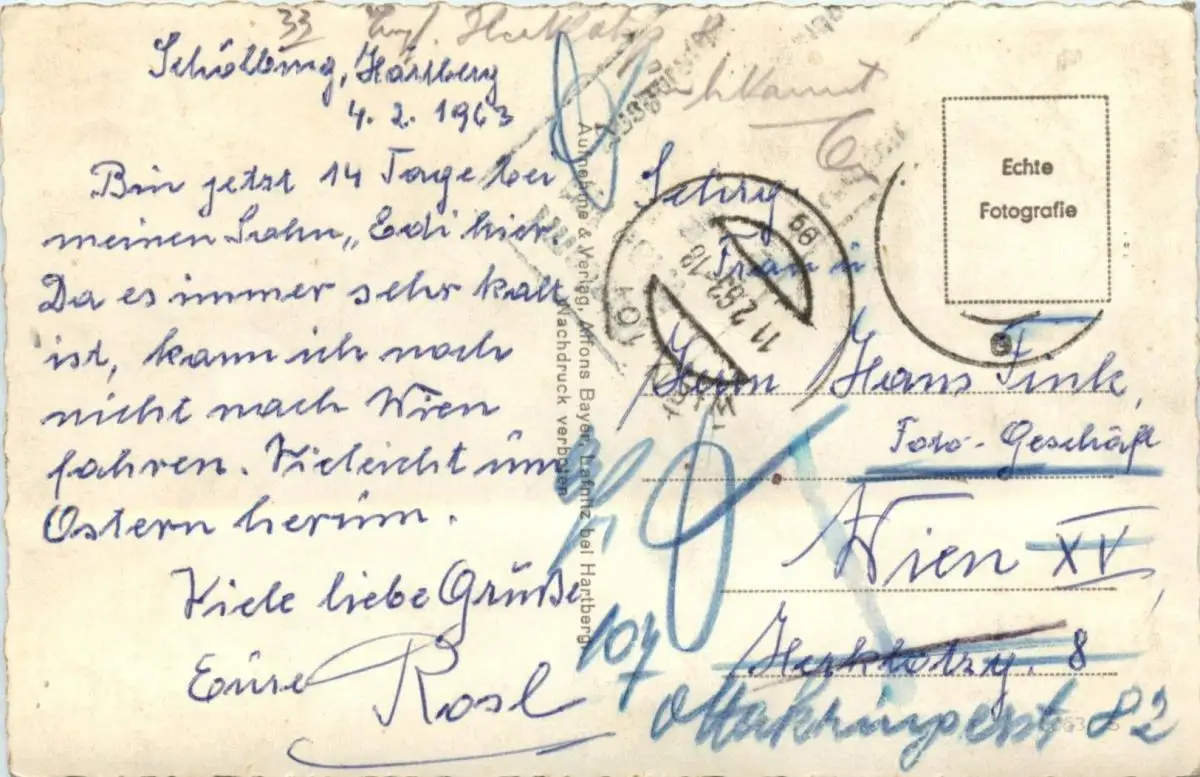 33
Schölbing, Hartberg
4. 2. 1963
Bin jetzt 14 Tage bei
meinen Sohn „Edi hier.
Da es immer sehr kalt
ist, kann ich noch
nicht nach Wien
fahren. Vieleicht üm
Ostern herüm.
Viele liebe Grüße
Eüre Rosl
Aufnahme & Verlag, Alfons Bayer, Lafnitz bei Hartberg
Nachdruck verboten
Echte
Fotografie
11 2 63-18
Frau u.
Herrn Hans Fink,
Foto-Geschäft
Wien XV,
Herklotzg. 8
107
Ottakringerstr 82